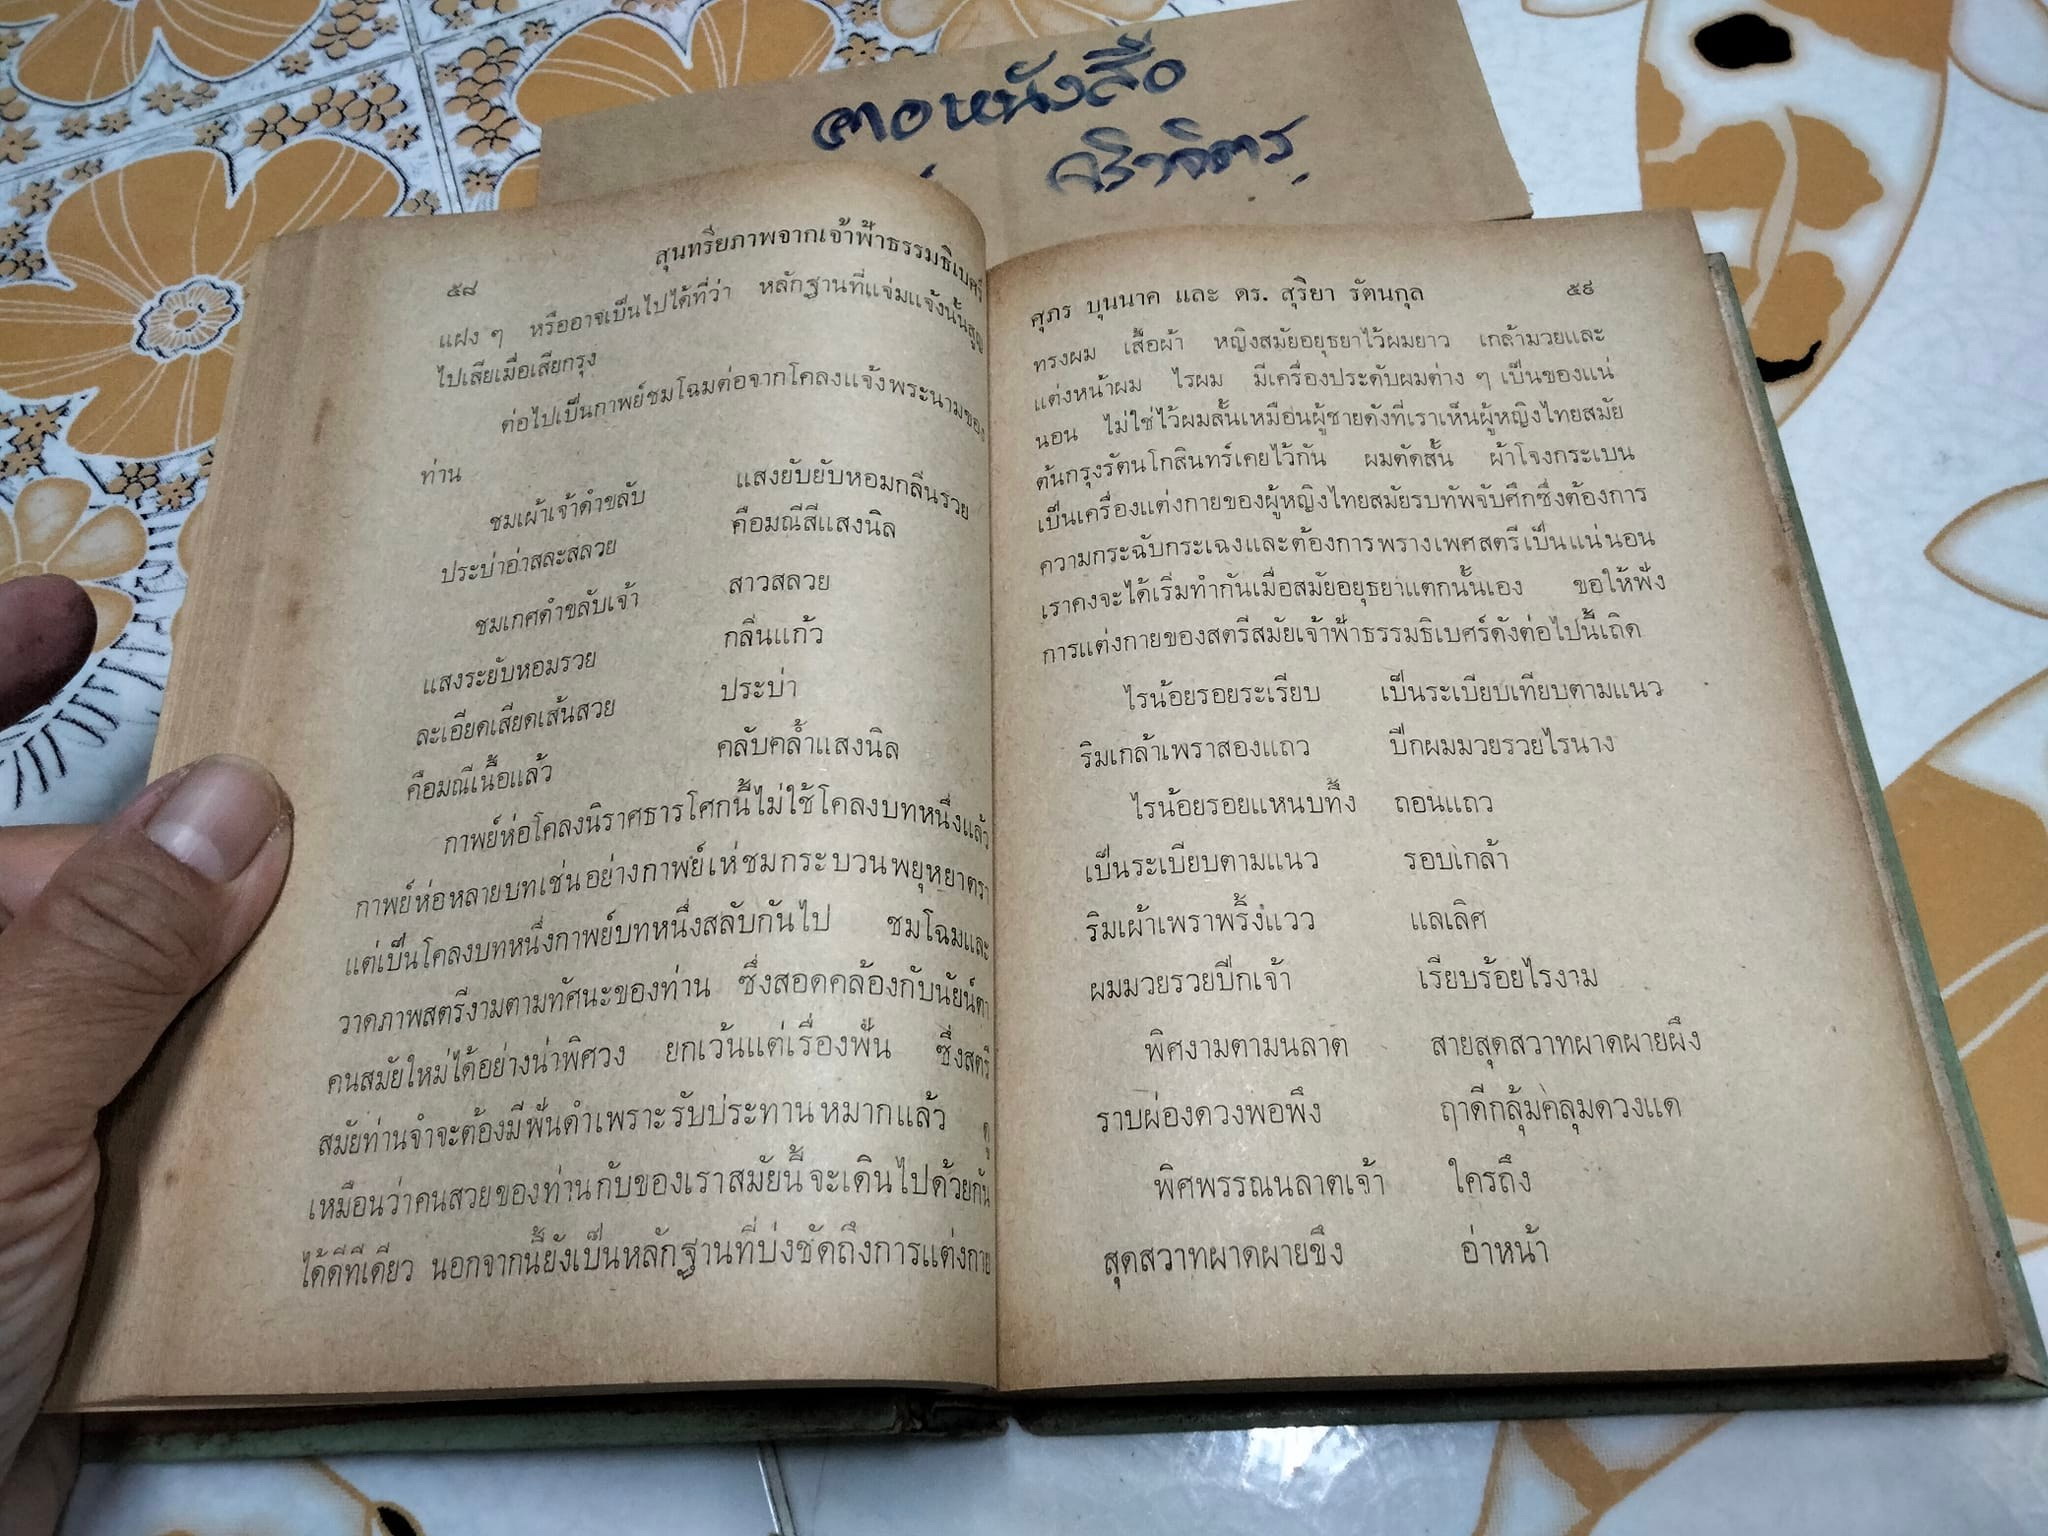 คอหนังสือ
ศุริวจิตร
๕๘
สุนทรียภาพจากเจ้าฟ้าธรรมธิเบศร์
แฝง ๆ หรืออาจเป็นไปได้ที่ว่า หลักฐานที่แจ่มแจ้งนั้นสูญ
ไปเสียเมื่อเสียกรุง
ต่อไปเป็นกาพย์ชมโฉมต่อจากโคลงแจ้งพระนามของ
ท่าน
ชมเผ้าเจ้าดำขลับ แสงยับยับหอมกลิ่นรวย
ประบ่าอ่าสละสลวย คือมณีสีแสงนิล
ชมเกศดำขลับเจ้า สาวสลวย
แสงระยับหอมรวย กลิ่นแก้ว
ละเอียดเสียดเส้นสวย ประบ่า
คือมณีเนื้อแล้ว คลับคล้ำแสงนิล
กาพย์ห่อโคลงนิราศธารโศกนี้ไม่ใช้โคลงบทหนึ่งแล้ว
กาพย์ห่อหลายบทเช่นอย่างกาพย์เห่ชมกระบวนพยุหยาตรา
แต่เป็นโคลงบทหนึ่งกาพย์บทหนึ่งสลับกันไป ชมโฉมและ
วาดภาพสตรีงามตามทัศนะของท่าน ซึ่งสอดคล้องกับนัยน์ตา
คนสมัยใหม่ได้อย่างน่าพิศวง ยกเว้นแต่เรื่องฟัน ซึ่งสตรี
สมัยท่านจำจะต้องมีฟันดำเพราะรับประทานหมากแล้ว ดู
เหมือนว่าคนสวยของท่านกับของเราสมัยนี้จะเดินไปด้วยกัน
ได้ดีทีเดียว นอกจากนี้ยังเป็นหลักฐานที่บ่งชัดถึงการแต่งกาย
ศุภร บุนนาค และ ดร. สุริยา รัตนกุล
๕๙
ทรงผม เสื้อผ้า หญิงสมัยอยุธยาไว้ผมยาว เกล้ามวยและ
แต่งหน้าผม ไรผม มีเครื่องประดับผมต่าง ๆ เป็นของแน่
นอน ไม่ใช่ไว้ผมสั้นเหมือนผู้ชายดังที่เราเห็นผู้หญิงไทยสมัย
ต้นกรุงรัตนโกสินทร์เคยไว้กัน ผมตัดสั้น ผ้าโจงกระเบน
เป็นเครื่องแต่งกายของผู้หญิงไทยสมัยรบทัพจับศึกซึ่งต้องการ
ความกระฉับกระเฉงและต้องการพรางเพศสตรีเป็นแน่นอน
เราคงจะได้เริ่มทำกันเมื่อสมัยอยุธยาแตกนั้นเอง ขอให้ฟัง
การแต่งกายของสตรีสมัยเจ้าฟ้าธรรมธิเบศร์ดังต่อไปนี้เถิด
ไรน้อยรอยระเรียบ เป็นระเบียบเทียบตามแนว
ริมเกล้าเพราสองแถว ปีกผมมวยรวยไรนาง
ไรน้อยรอยแหนบทึ้ง ถอนแถว
เป็นระเบียบตามแนว รอบเกล้า
ริมเผ้าเพราพริ้งแวว แลเลิศ
ผมมวยรวยปีกเจ้า เรียบร้อยไรงาม
พิศงามตามนลาต สายสุดสวาทผาดผายผึง
ราบผ่องดวงพอพึง ฤาดีกลุ้มคลุมดวงแด
พิศพรรณนลาตเจ้า ใครถึง
สุดสวาทผาดผายขึง อ่าหน้า